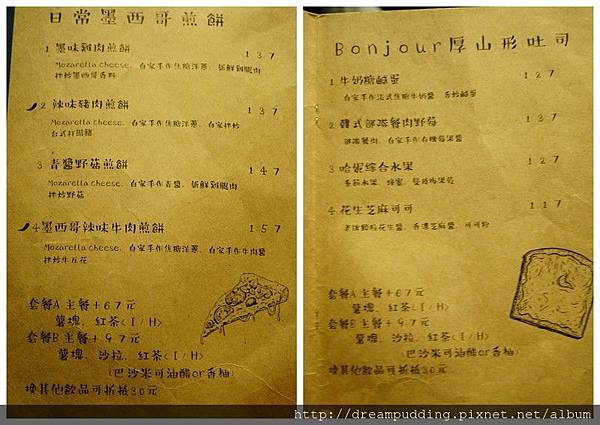 日常墨西哥煎餅
1 墨味雞肉煎餅 137
Mozarella cheese、自家手作焦糖洋蔥、新鮮雞腿肉
拌炒墨西哥香料
2 辣味豬肉煎餅 137
Mozarella cheese、自家手作焦糖洋蔥、自家拌炒
台式打拋豬
3 青醬野菇煎餅 147
Mozarella cheese、自家手作青醬、新鮮雞腿肉
拌炒野菇
4 墨西哥辣味牛肉煎餅 157
Mozarella cheese、自家手作焦糖洋蔥、自家手作牛肉醬
拌炒牛五花
套餐A 主餐+67元
薯塊、紅茶(I/H)
套餐B 主餐+97元
薯塊、沙拉、紅茶(I/H)
(巴沙米可油醋or香柚)
換其他飲品可折抵30元
Bonjour厚山形吐司
1 牛奶糖鹹蛋 127
自家手作法式焦糖牛奶醬、香炒鹹蛋
2 韓式 餐肉野莓 137
自家手作有機莓果醬
3 哈妮綜合水果 127
季節水果、蜂蜜、蔓越梅果乾
4 花生芝麻可可 117
老牌顆粒花生醬、香濃芝麻醬、可可粉
套餐A 主餐+67元
薯塊、紅茶(I/H)
套餐B 主餐+97元
薯塊、沙拉、紅茶(I/H)
(巴沙米可油醋or香柚)
換其他飲品可折抵30元
http://dreampudding.pixnet.net/album